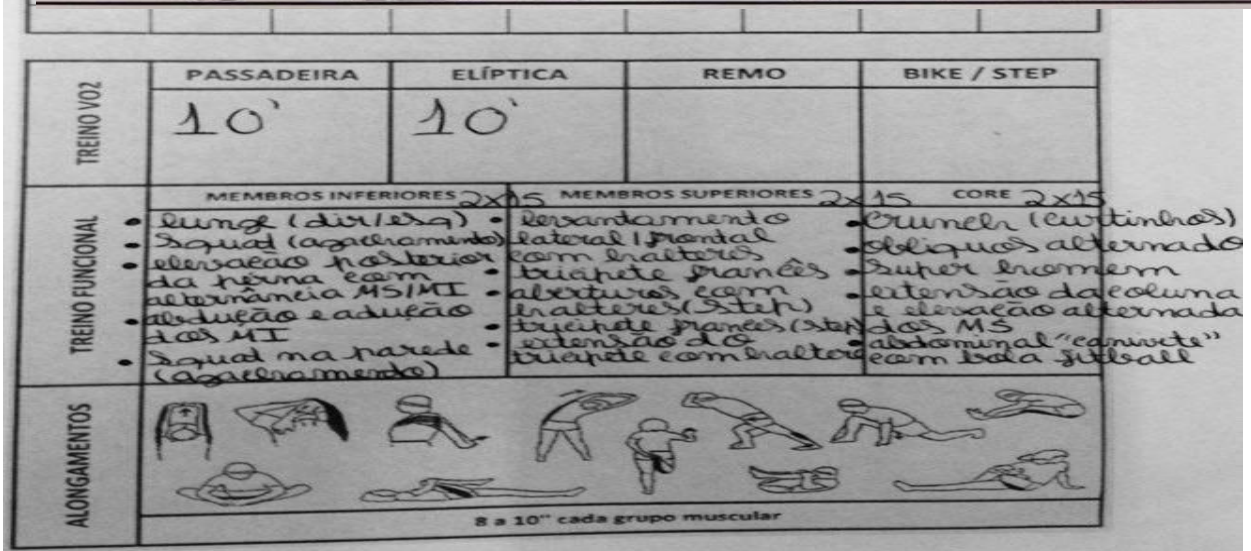 TREINO VO2
PASSADEIRA
ELÍPTICA
REMO
BIKE / STEP
10'
10'
TREINO FUNCIONAL
MEMBROS INFERIORES 2x15
• lunge (dir/esq)
• Squat (agachamento)
• elevação posterior
da perna com
alternância MS/MI
• abdução e adução
dos MI
• Squat na parede
(agachamento)
MEMBROS SUPERIORES 2x15
• levantamento
lateral/frontal
com halteres
• tricípete francês
• aberturas com
halteres (Step)
• tricípete frances (step)
• extensão do
tricípete com halter
CORE 2x15
• Crunch (curtinhos)
• obliquos alternado
• super homem
• extensão da coluna
e elevação alternada
dos MS
• abdominal "canivete"
com bola fitball
ALONGAMENTOS
8 a 10" cada grupo muscular